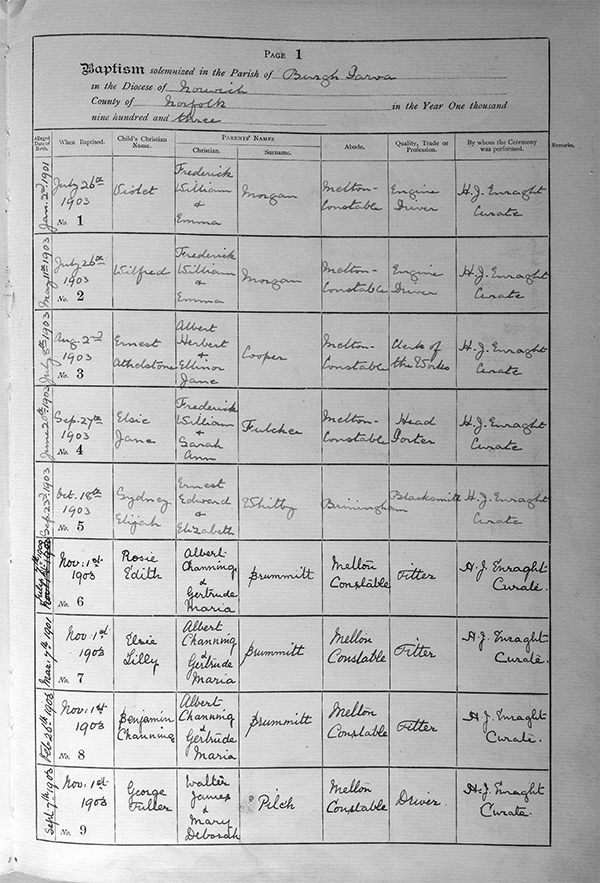 PAGE 1
Baptism solemnized in the Parish of Burgh Parva
in the Diocese of Norwich
County of Norfolk in the Year One thousand
nine hundred and three
Alleged Date of Birth.
When Baptised.
Child's Christian Name.
PARENTS' NAMES
Christian.
Surname.
Abode.
Quality, Trade or Profession.
By whom the Ceremony was performed.
Remarks.
Jan. 2nd 1901
July 26th
1903
No. 1
Violet
Frederick
William
&
Emma
Morgan
Melton-
Constable
Engine
Driver
H. J. Enraght
Curate
May 11th 1903
July 26th
1903
No. 2
Wilfred
Frederick
William
&
Emma
Morgan
Melton-
Constable
Engine
Driver
H. J. Enraght
Curate
July 8th 1903
Aug. 2nd
1903
No. 3
Ernest
Athelstone
Albert
Herbert
&
Ellinor
Jane
Cooper
Melton-
Constable
Clerk of
the Works
H. J. Enraght
Curate
June 20th 1903
Sep. 27th
1903
No. 4
Elsie
Jane
Frederick
William
&
Sarah
Ann
Fulcher
Melton-
Constable
Head
Porter
H. J. Enraght
Curate
Sep. 23rd 1903
Oct. 18th
1903
No. 5
Sydney
Elijah
Ernest
Edward
&
Elizabeth
Whitby
Briningham
Blacksmith
H. J. Enraght
Curate
Nov: 1st
1903
No. 6
Rosie
Edith
Albert
Channing
&
Gertrude
Maria
Brummitt
Melton
Constable
Fitter
H. J. Enraght
Curate.
Mar: 7th 1901
Nov: 1st
1903
No. 7
Elsie
Lilly
Albert
Channing
&
Gertrude
Maria
Brummitt
Melton
Constable
Fitter
H. J. Enraght
Curate.
Feb 26th 1903
Nov: 1st
1903
No. 8
Benjamin
Channing
Albert
Channing
&
Gertrude
Maria
Brummitt
Melton
Constable
Fitter
H. J. Enraght
Curate.
Sept 7th 1903
Nov: 1st
1903
No. 9
George
Fuller
Walter
James
&
Mary
Deborah
Pilch
Melton
Constable
Driver
H. J. Enraght
Curate.